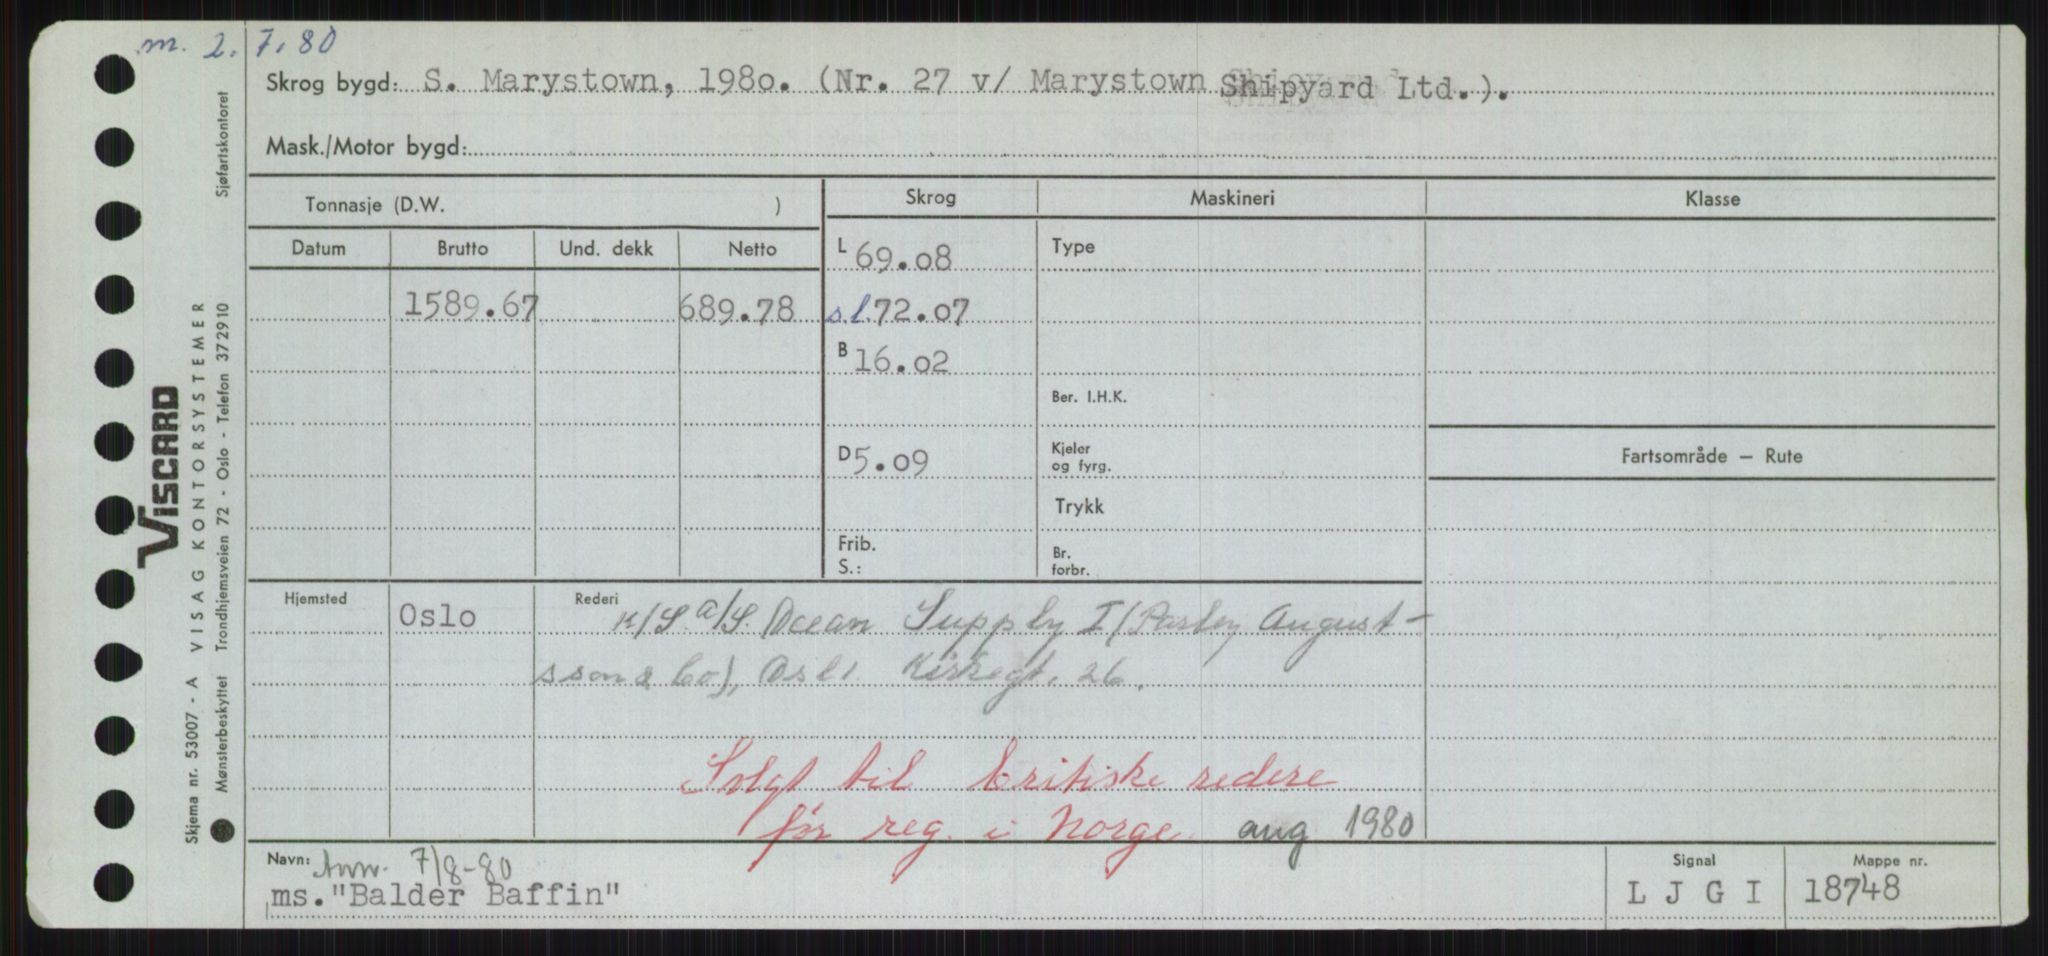 m. 2. 7. 80
Skrog bygd: S. Marystown, 1980. (Nr. 27 v/ Marystown Shipyard Ltd.).
Mask./Motor bygd:
Tonnasje (D.W. )
Skrog
Maskineri
Klasse
Datum
Brutto
Und. dekk
Netto
L 69.08
Type
1589.67
689.78
s.l. 72.07
B 16.02
Ber. I.H.K.
D 5.09
Kjeler
og fyrg.
Fartsområde – Rute
Trykk
Frib.
S.:
Br.
forbr.
Hjemsted
Oslo
Rederi
K/S. A/S. Ocean Supply I (Parley August-
sson & Co), Oslo. Kirkegt. 26.
Solgt til britiske redere
før reg. i Norge. aug 1980
Navn: Ann. 7/8-80
ms."Balder Baffin"
Signal
L J G I
Mappe nr.
18748
Sjøfartskontoret
VISCARD
Skjema nr. 53007 - A VISAG KONTORSYSTEMER
Mønsterbeskyttet Trondhjemsveien 72 - Oslo - Telefon 372910